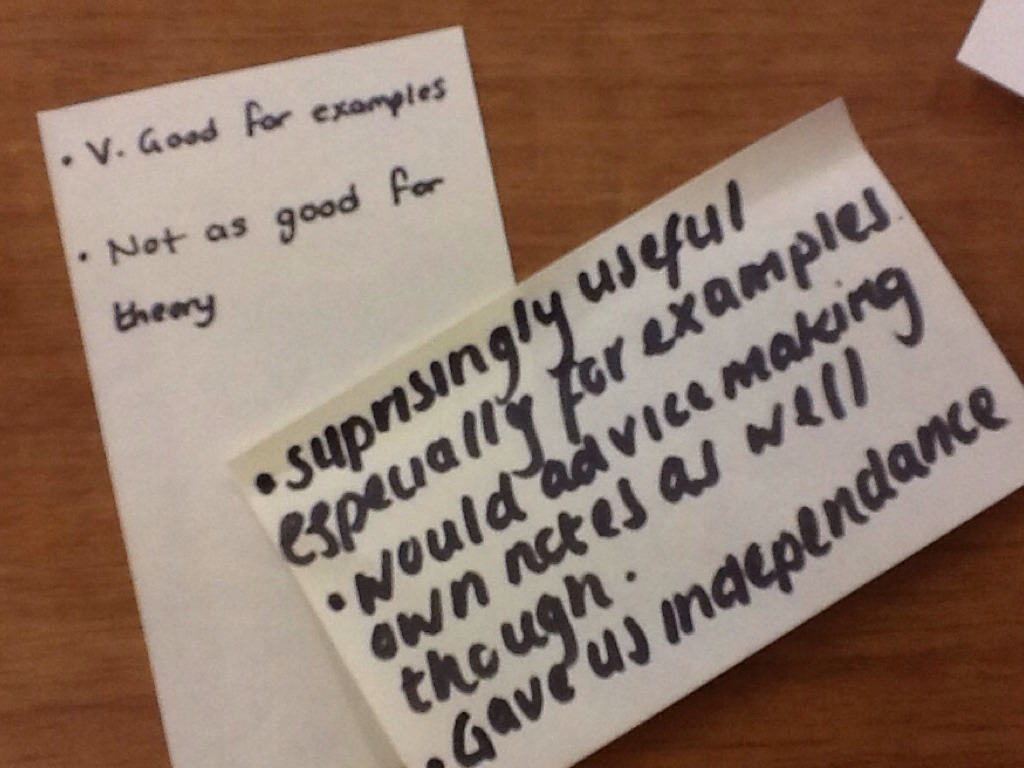 • V. Good for examples
• Not as good for
theory
• suprisingly useful
especially for examples.
• would advice making
own notes as well
though.
• Gave us independance